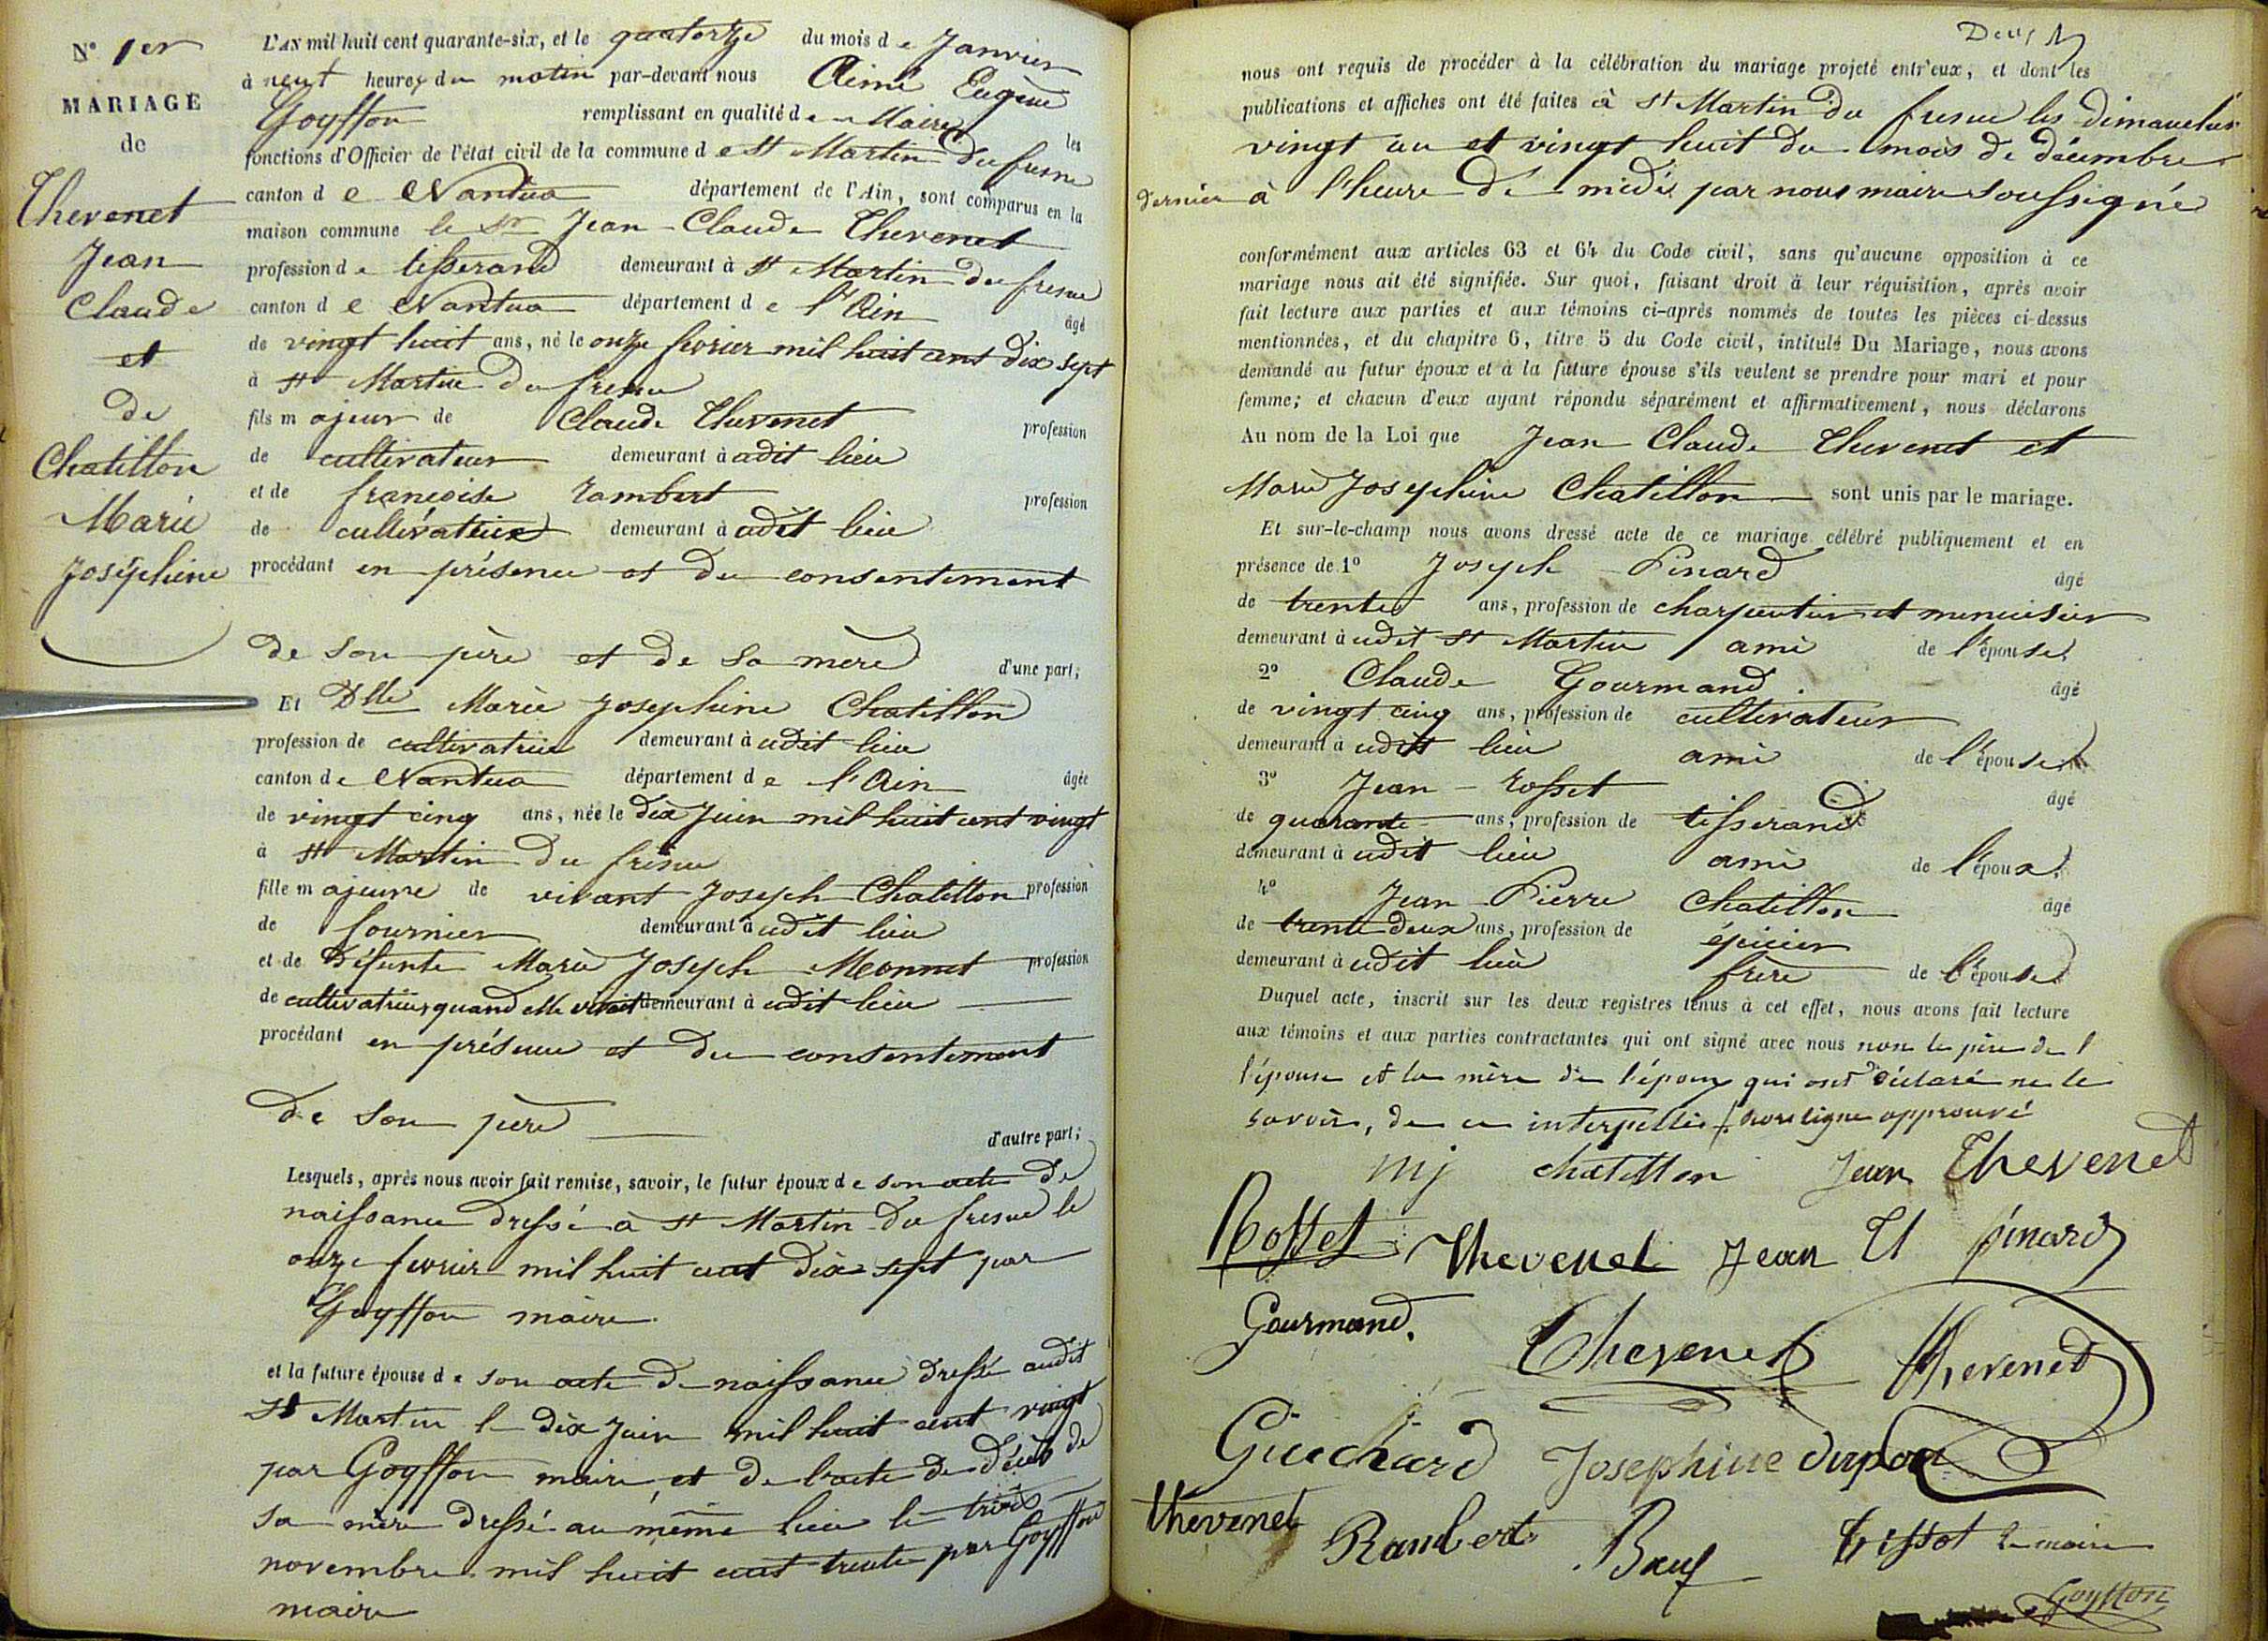 N° 1er
MARIAGE
de
Thevenet
Jean
Claude
et
de
Chatillon
Marie
Joséphine
L'AN mil huit cent quarante-six, et le quatorze du mois de Janvier
à neuf heures du matin par-devant nous Aimé Eugène
Goyffon remplissant en qualité de Maire les
fonctions d'Officier de l'état civil de la commune de St Martin du fresne
canton de Nantua département de l'Ain, sont comparus en la
maison commune le Sr Jean-Claude Thevenet
profession de tisserand demeurant à St Martin du fresne
canton de Nantua département de l'Ain âgé
de vingt huit ans, né le onze fevrier mil huit cent dix sept
à St Martin du fresne
fils majeur de Claude Thevenet profession
de cultivateur demeurant à udit lieu
et de françoise Rambert profession
de cultivatrice demeurant à udit lieu
procédant en présence et du consentement
de son père et de sa mère d'une part;
Et Dlle Marie Josephine Chatillon
profession de cultivatrice demeurant à udit lieu
canton de Nantua département de l'Ain âgée
de vingt cinq ans, née le dix Juin mil huit cent vingt
à St Martin du fresne
fille majeure de vivant Joseph Chatillon profession
de fournier demeurant à udit lieu
et de Défunte Marie Joseph Monnet profession
de cultivatrice quand elle vivait demeurant à udit lieu
procédant en présence et du consentement
de son père d'autre part;
Lesquels, après nous avoir fait remise, savoir, le futur époux de son acte de
naissance dressé à St Martin du fresne le
onze fevrier mil huit cent dix sept par
Goyffon maire
et la future épouse de son acte de naissance dressé audit
St Martin le dix Juin mil huit cent vingt
par Goyffon maire, et de l'acte de décès de
sa mère dressé au même lieu le trois
novembre mil huit cent trente par Goyffon
maire
Deux
nous ont requis de procéder à la célébration du mariage projeté entr'eux, et dont les
publications et affiches ont été faites à St Martin du fresne les dimanches
vingt un et vingt huit du mois de décembre
dernier à l'heure de midi par nous maire soussigné
conformément aux articles 63 et 64 du Code civil, sans qu'aucune opposition à ce
mariage nous ait été signifiée. Sur quoi, faisant droit à leur réquisition, après avoir
fait lecture aux parties et aux témoins ci-après nommés de toutes les pièces ci-dessus
mentionnées, et du chapitre 6, titre 5 du Code civil, intitulé Du Mariage, nous avons
demandé au futur époux et à la future épouse s'ils veulent se prendre pour mari et pour
femme; et chacun d'eux ayant répondu séparément et affirmativement, nous déclarons
Au nom de la Loi que Jean Claude Thevenet et
Marie Josephine Chatillon sont unis par le mariage.
Et sur-le-champ nous avons dressé acte de ce mariage célébré publiquement et en
présence de 1° Joseph Pinard âgé
de trente ans, profession de charpentier et menuisier
demeurant à udit St Martin ami de l'épouse.
2° Claude Gourmand âgé
de vingt cinq ans, profession de cultivateur
demeurant à udit lieu ami de l'épouse
3° Jean Rosset âgé
de quarante ans, profession de tisserand
demeurant à udit lieu ami de l'époux.
4° Jean-Pierre Chatillon âgé
de trente deux ans, profession de épicier
demeurant à udit lieu frère de l'épouse
Duquel acte, inscrit sur les deux registres tenus à cet effet, nous avons fait lecture
aux témoins et aux parties contractantes qui ont signé avec nous non le père de l
l'épouse et la mère de l'époux qui ont déclaré ne le
savoir, de ce interpellés hors ligne approuvé
mj chatillon Jean Thevenet
Rosset Thevenet Jean Cl pinard
Gourmand. Thevenet Thevenet
Guichard Josephine dupon
Thevenet Rambert tissot le maire
Goyffon